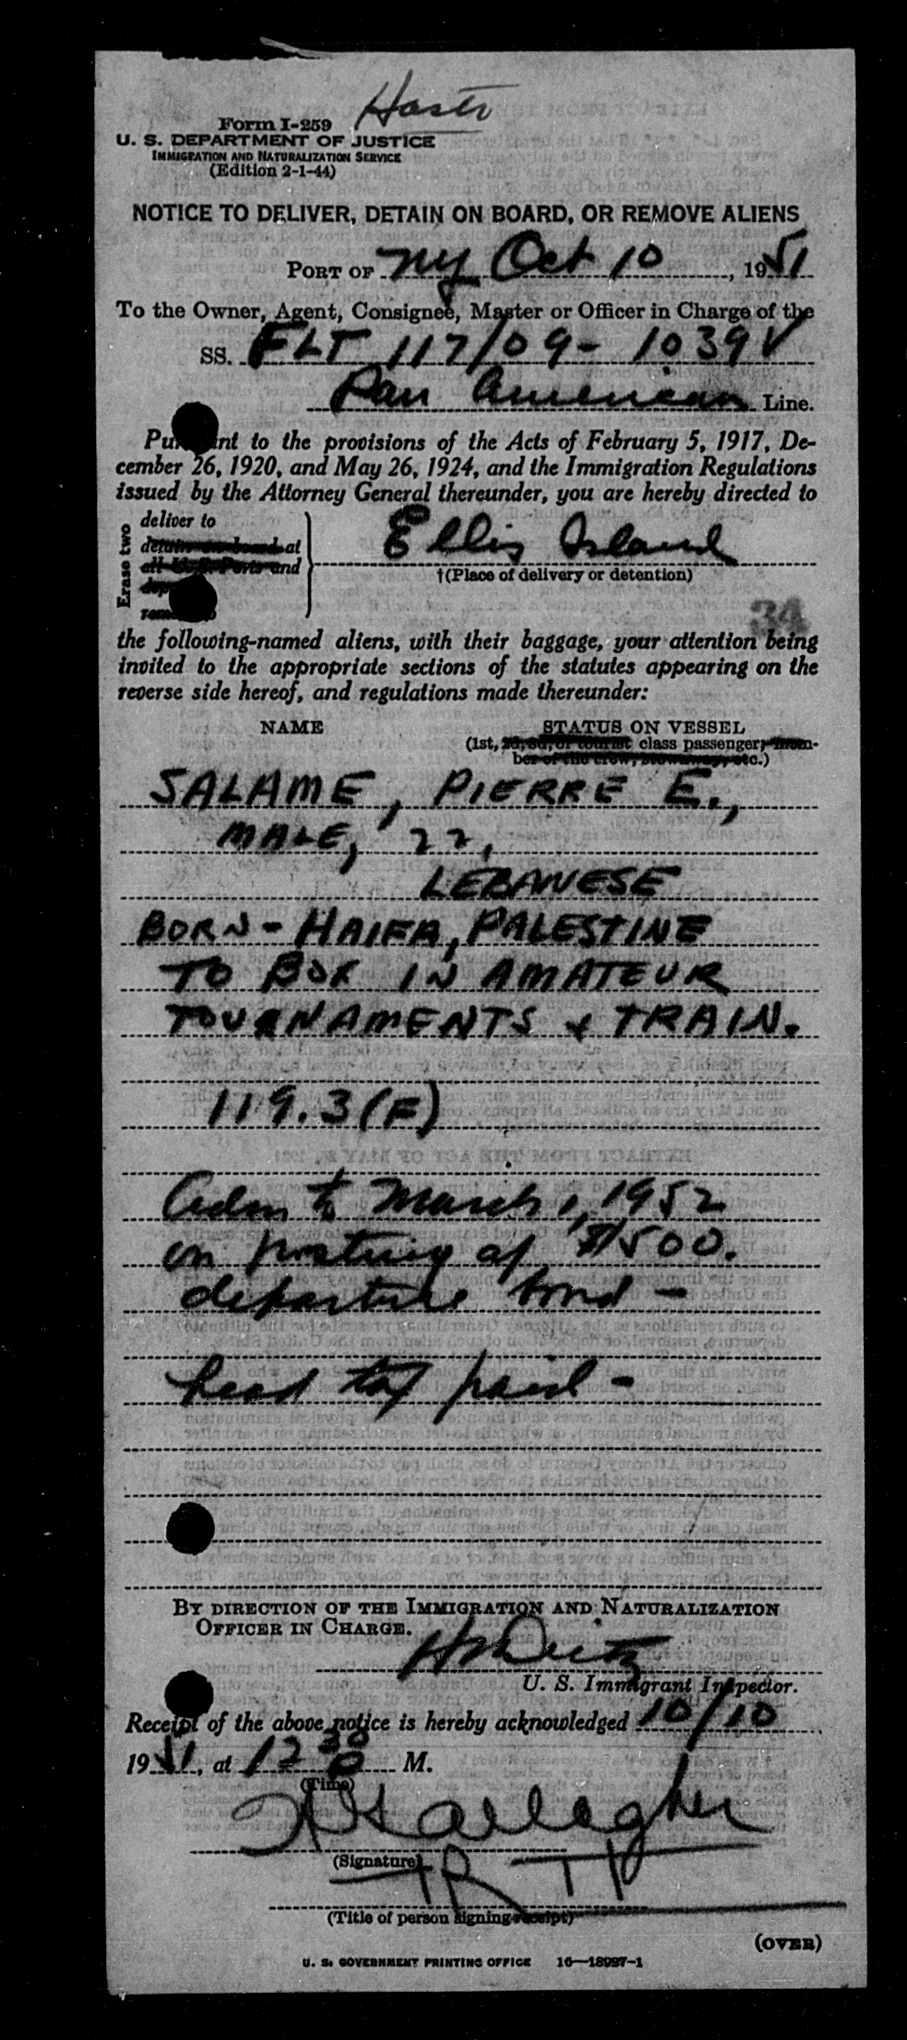 Form I-259
U. S. DEPARTMENT OF JUSTICE
IMMIGRATION AND NATURALIZATION SERVICE
(Edition 2-1-44)
NOTICE TO DELIVER, DETAIN ON BOARD, OR REMOVE ALIENS
PORT OF NY Oct 10, 1951
To the Owner, Agent, Consignee, Master or Officer in Charge of the
SS. FLT 117/09- 1039V
Pan American Line.
Pursuant to the provisions of the Acts of February 5, 1917, De-
cember 26, 1920, and May 26, 1924, and the Immigration Regulations
issued by the Attorney General thereunder, you are hereby directed to
Erase two
deliver to
detain on board at
all U. S. Ports and
Ellis Island
†(Place of delivery or detention)
34
the following-named aliens, with their baggage, your attention being
invited to the appropriate sections of the statutes appearing on the
reverse side hereof, and regulations made thereunder:
NAME
STATUS ON VESSEL
(1st, 2d, 3d, or tourist class passenger, mem-
ber of the crew, stowaway, etc.)
SALAME, PIERRE E.,
MALE, 22,
LEBANESE
BORN - HAIFA, PALESTINE
TO BOX IN AMATEUR
TOURNAMENTS & TRAIN.
119.3(F)
Adm to March 1, 1952
on posting of $500.
departure bond -
head tax paid -
BY DIRECTION OF THE IMMIGRATION AND NATURALIZATION
OFFICER IN CHARGE.
U. S. Immigrant Inspector.
Receipt of the above notice is hereby acknowledged 10/10
1951, at 12 30 P M.
(Time)
Gallagher
(Signature)
(Title of person signing receipt)
(OVER)
U. S. GOVERNMENT PRINTING OFFICE 16—18997-1